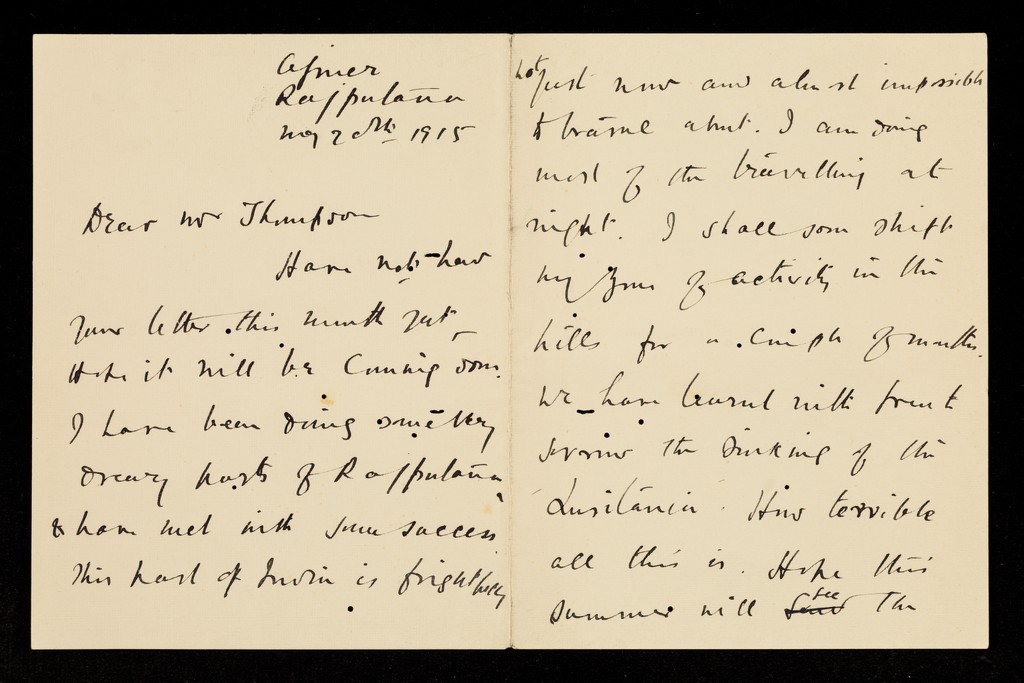 Ajmer
Rajputana
May 20th 1915
Dear Mr Thompson
Have not had
your letter this month yet,
Hope it will be coming soon.
I have been doing some very
dreary parts of Rajputana
& have met with some success
This part of India is frightfully
hot just now and almost impossible
to travel about. I am doing
most of the travelling at
night. I shall soon shift
my zone of activity in the
hills for a couple of months.
We have learnt with great
sorrow the sinking of the
Lusitania. How terrible
all this is. Hope this
summer will see the